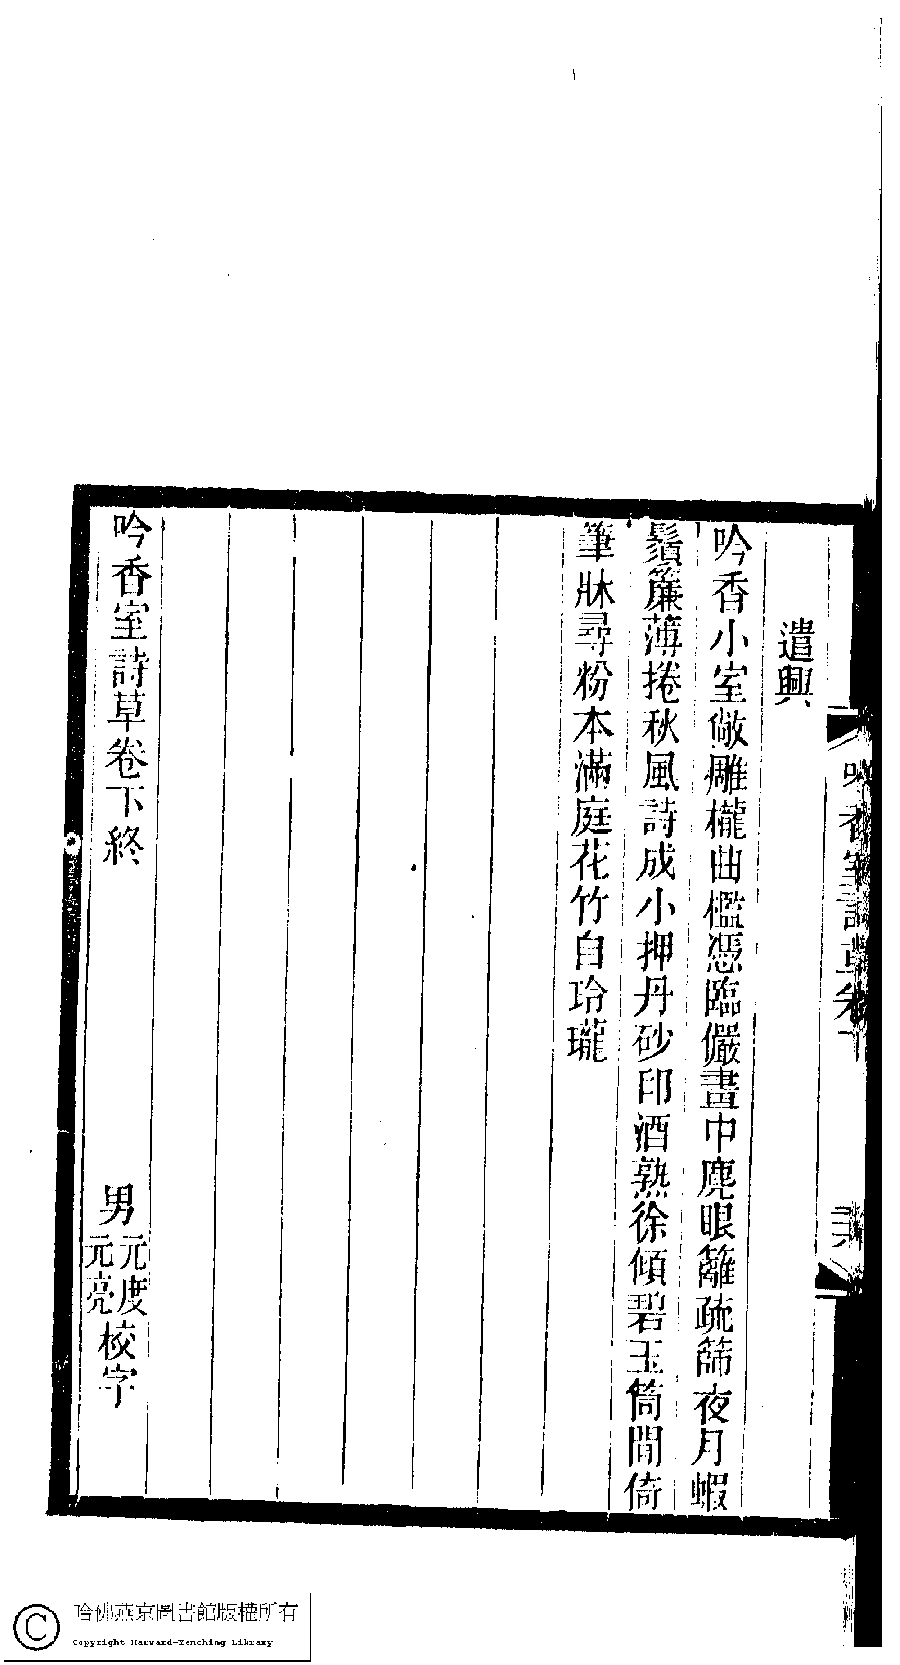 遣興
吟香小室敞雕櫳曲檻憑臨儼畫中麂眼籬疏篩夜月蝦
鬚簾薄捲秋風詩成小押丹砂印酒熟徐傾碧玉筒閒倚
筆牀尋粉本滿庭花竹自玲瓏
吟香室詩草卷下終
男元度元亮校字
吟香室詩草卷下
哈佛燕京圖書館版權所有
Copyright Harvard-Yenching Library